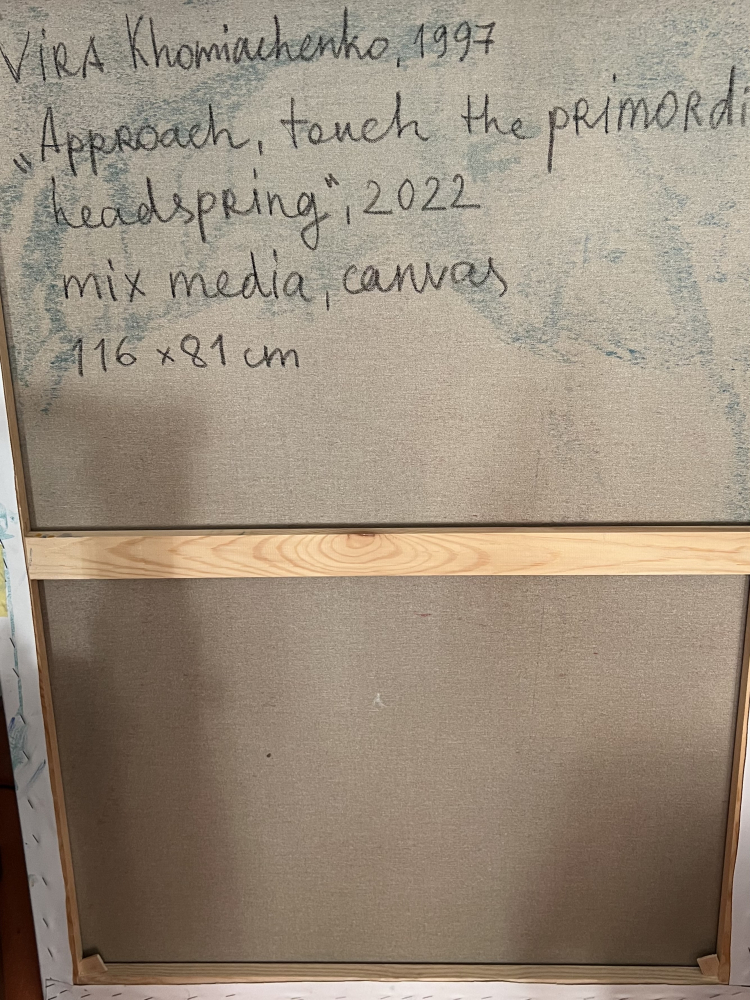 VIRA Khomiachenko, 1997
„Approach, touch the primordi
headspring“, 2022
mix media, canvas
116 x 81 cm